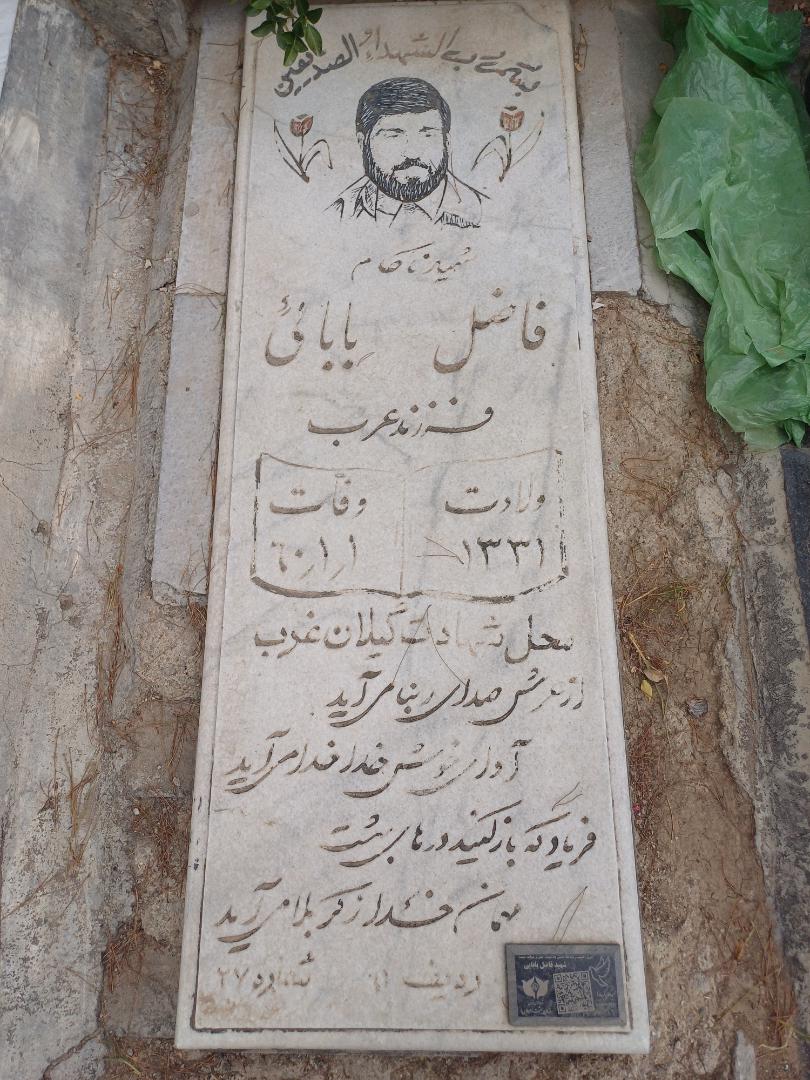 بسم رب الشهداء و الصدیقین
شهید ناکام
فاضل بابائی
فرزند عرب
ولادت وفات
۱۳۳۱ ۶۰/۱/۱
محل شهادت گیلان غرب
از عرش صدای ربنا می آید
آوای خوش خدا خدا می آید
فریاد که باز کنید درهای بهشت
مهمان خدا از کربلا می آید
ردیف شماره ۲۷
شهید فاضل بابایی